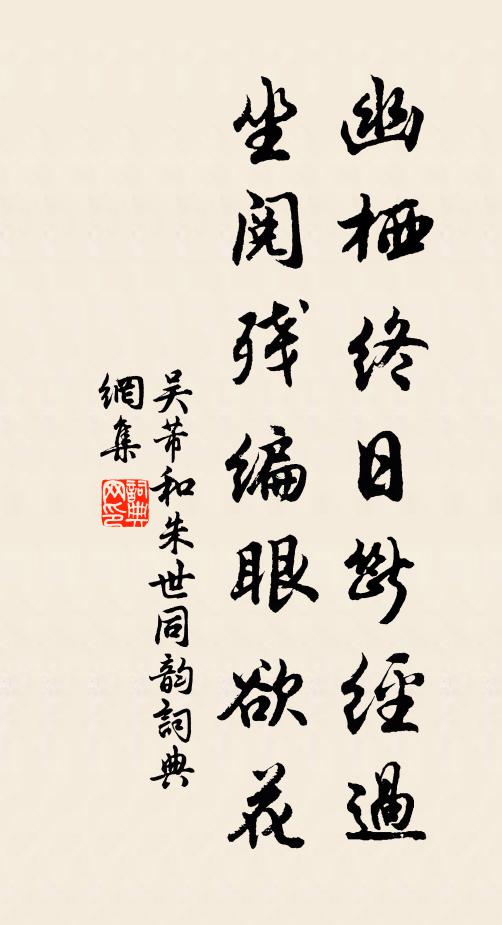 幽栖终日断經過
坐阅残编眼欲花
吴芾和朱世同韵詞典
網集
詞典
网印